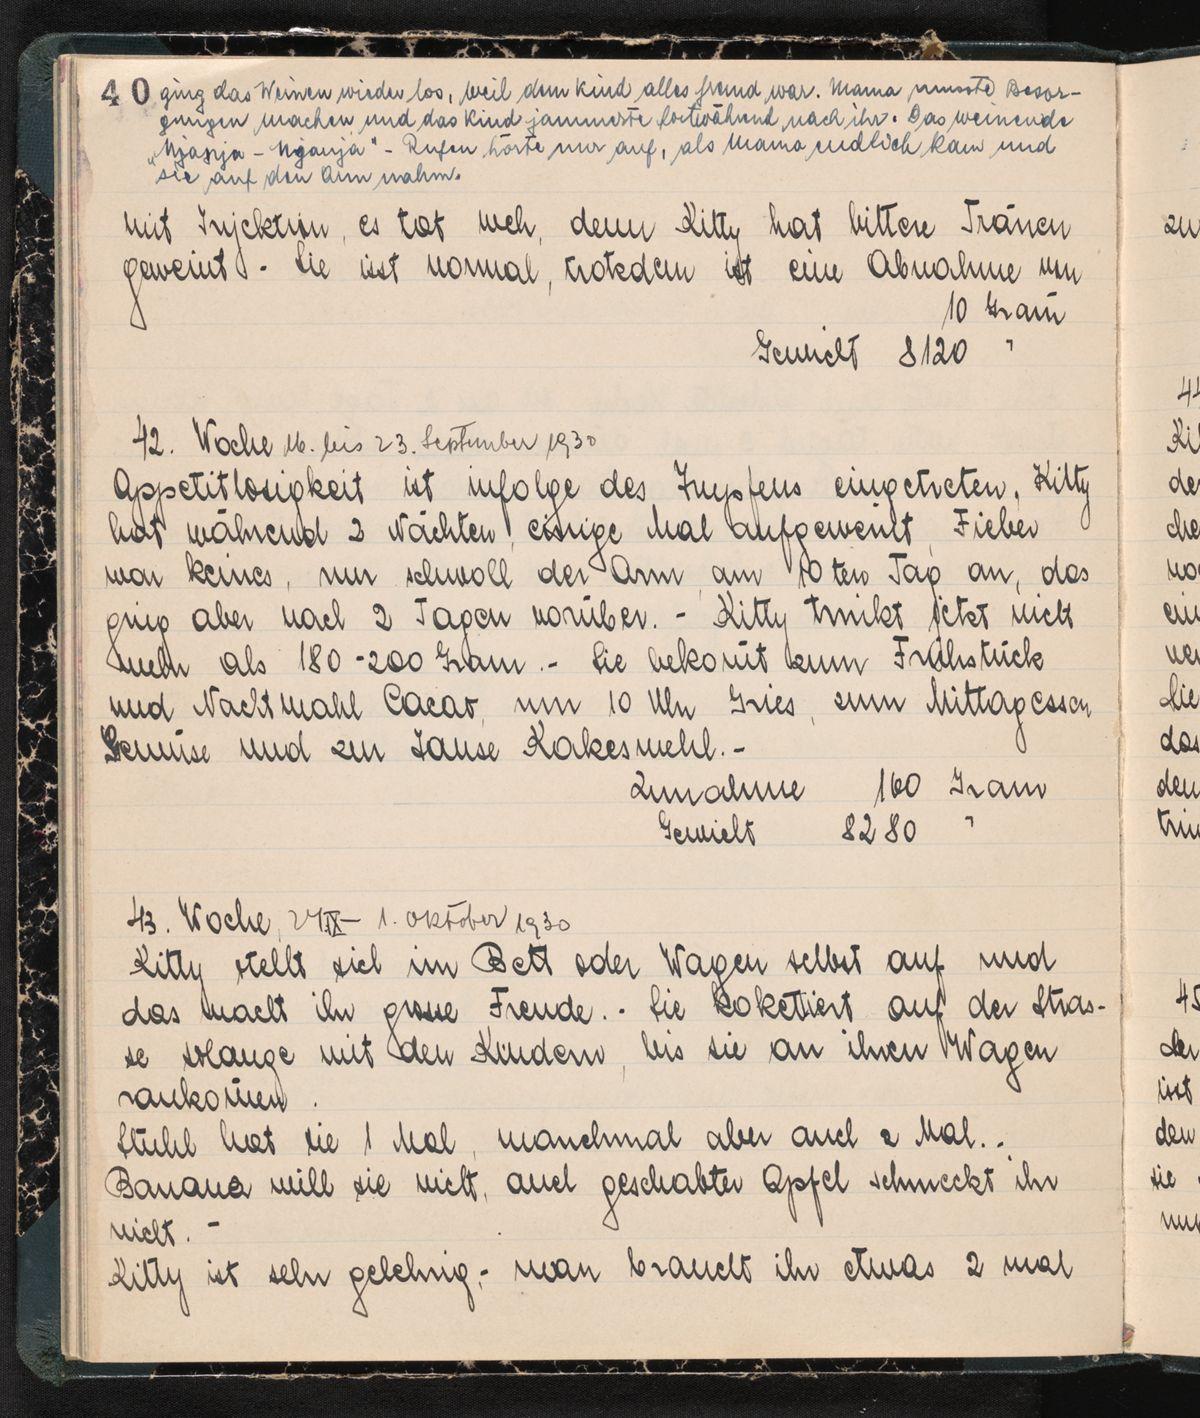 40 ging das Weinen wieder los, weil dem Kind alles fremd war. Mama musste Besor-
gungen machen und das Kind jammerte fortwährend nach ihr. Das weinende
"Njanja - Nganja" - Rufen hörte nur auf, als Mama endlich kam und
sie auf den Arm nahm.
mit Injektion, es tat weh, denn Kitty hat bittere Tränen
geweint. - Sie isst normal, trotzdem ist eine Abnahme von
10 Gram̄
Gewicht 8120 "
42. Woche 16. bis 23. September 1930
Appetitlosigkeit ist infolge des Impfens eingetreten, Kitty
hat während 2 Nächten einige Mal aufgeweint, Fieber
war keines, nur schwoll der Arm am 10 ten Tag an, das
ging aber nach 2 Tagen vorüber. - Kitty trinkt jetzt nicht
mehr als 180-200 Gram. - Sie bekom̄t zum Frühstück
und Nachtmahl Cacao, um 10 Uhr Gries, zum Mittagessen
Gemüse und zur Jause Kakesmehl. -
Zunahme 160 Gram
Gewicht 8280 "
43. Woche, 24 IX - 1. Oktober 1930
Kitty stellt sich im Bett oder Wagen selbst auf und
das macht ihr grosse Freude. - Sie kokettiert auf der Stras-
se solange mit den Kindern, bis sie an ihren Wagen
rankom̄en.
Stuhl hat sie 1 Mal, manchmal aber auch 2 Mal. -
Banana will sie nicht, auch geschabter Apfel schmeckt ihr
nicht. -
Kitty ist sehr gelehrig, - man braucht ihr etwas 2 mal